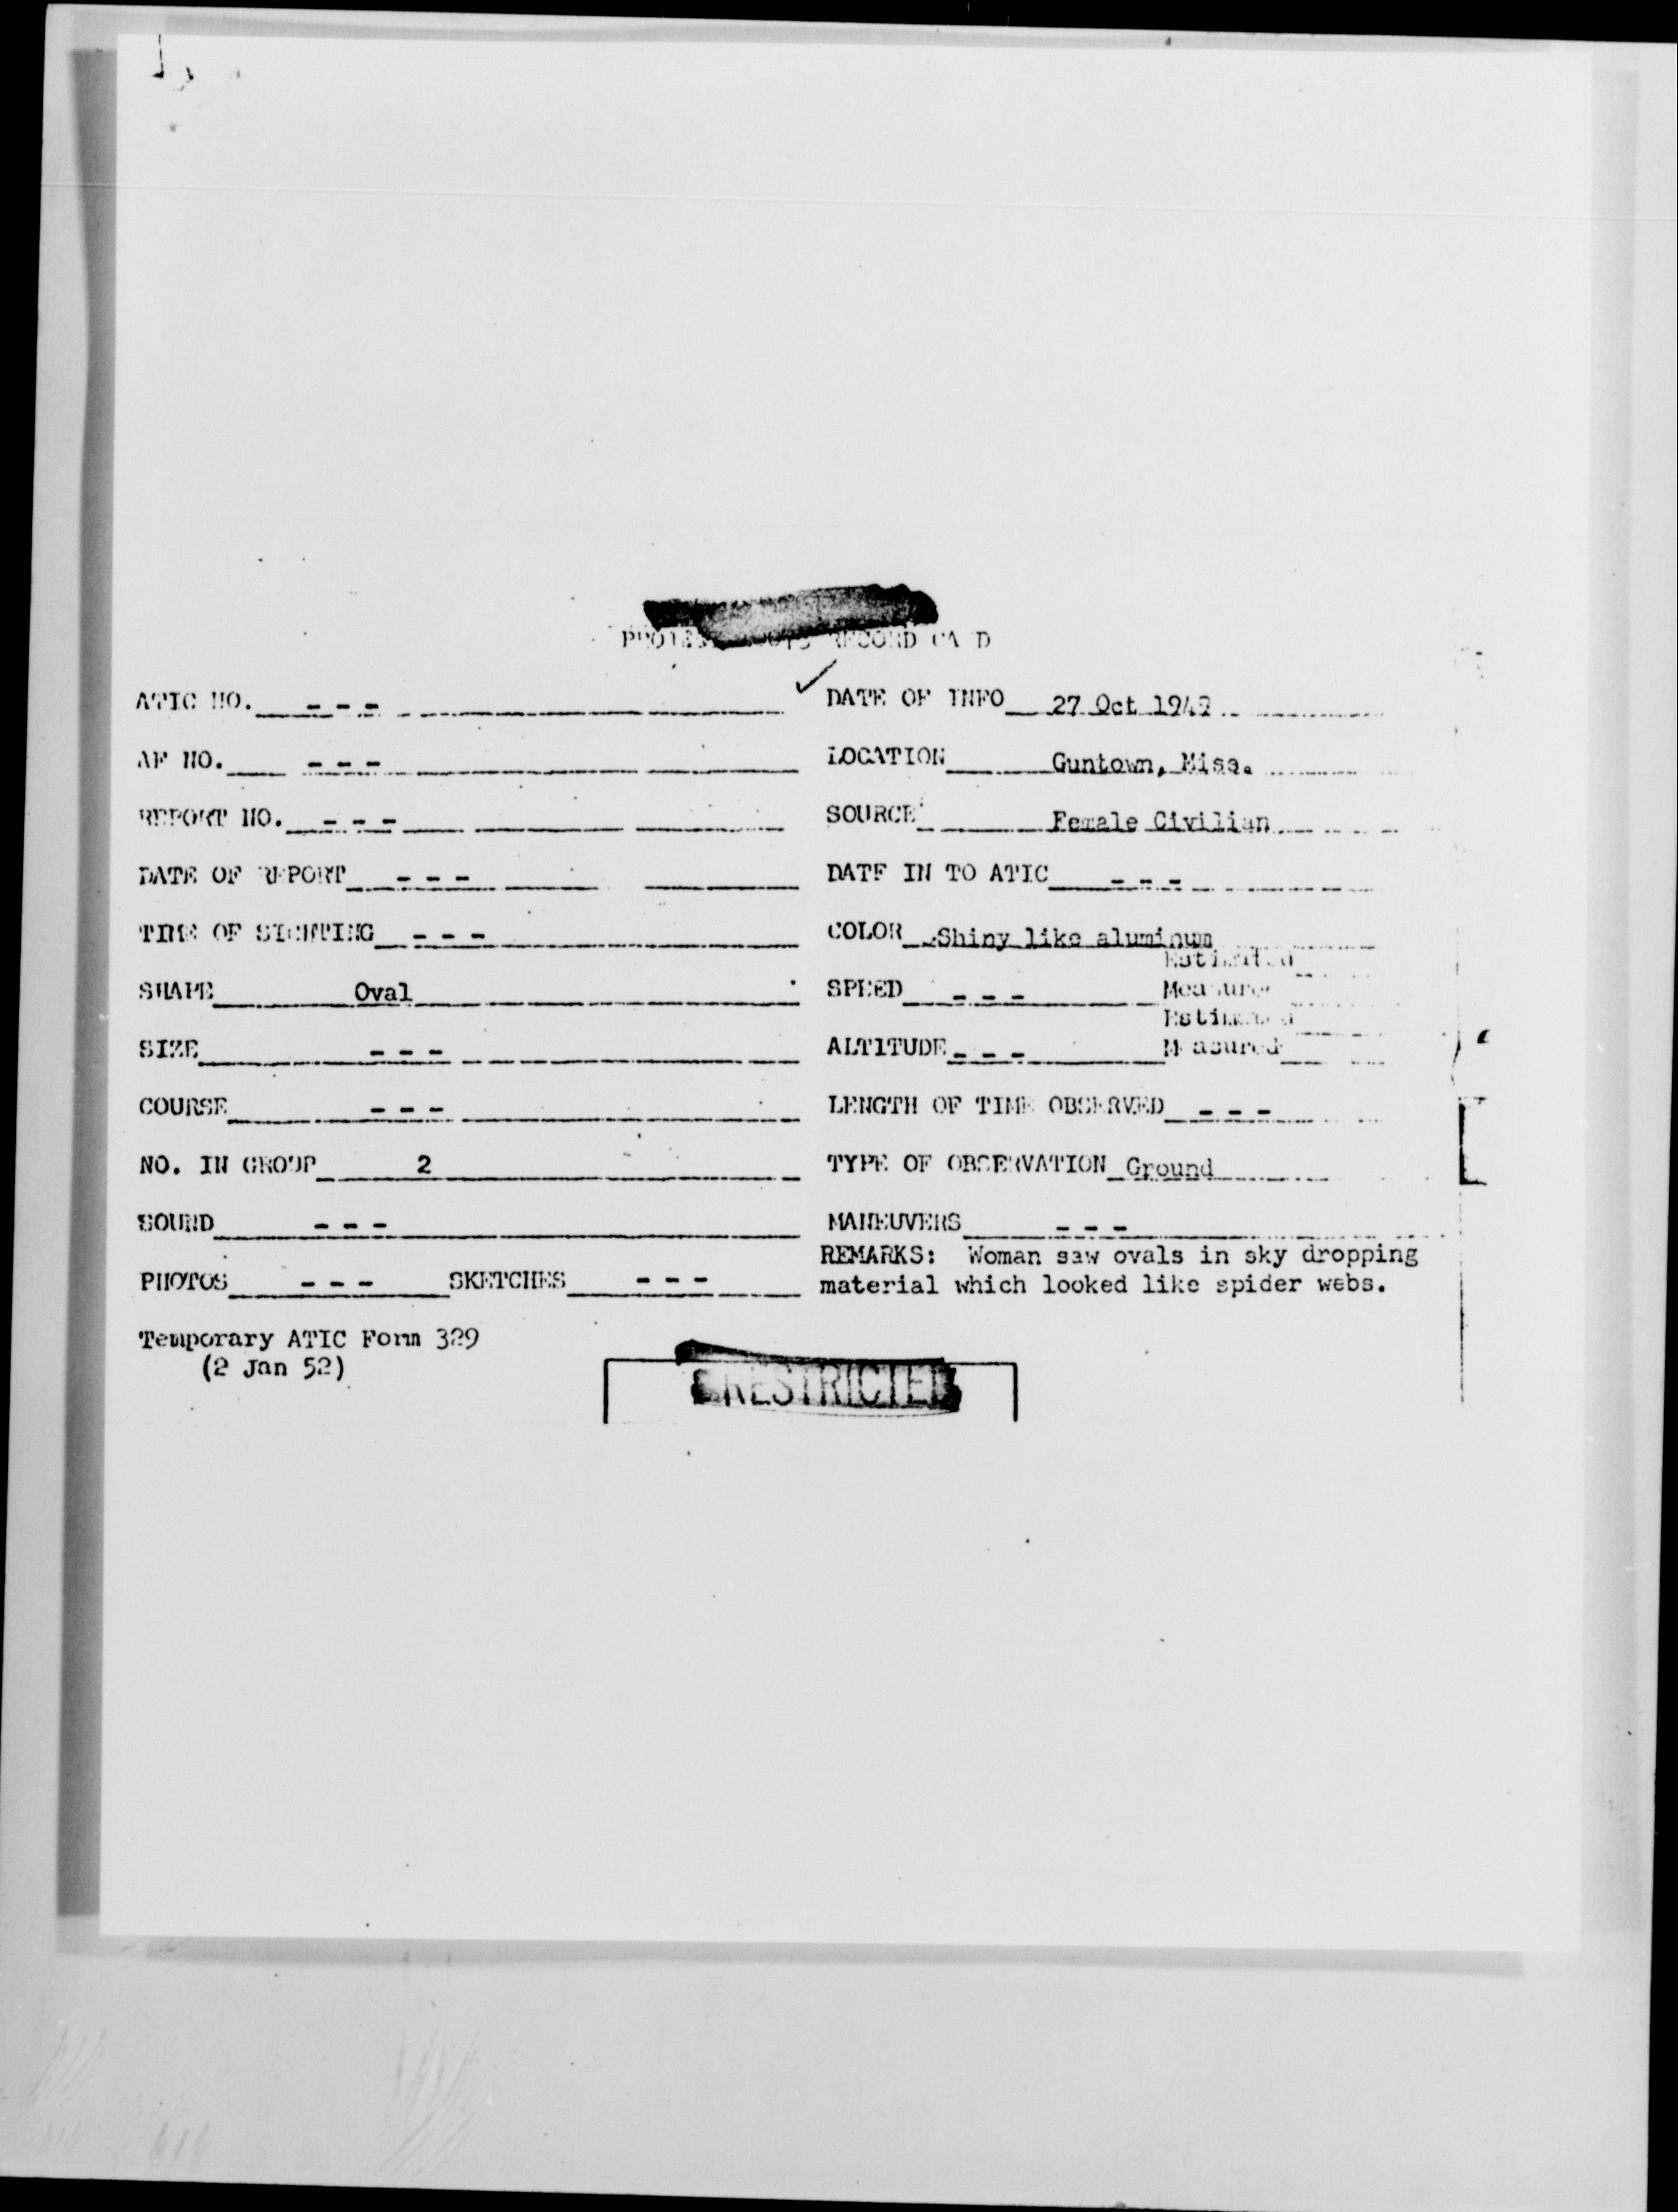 RECORD CARD
ATIC NO. - - - DATE OF INFO 27 Oct 1949
AF NO. - - - LOCATION Guntown, Miss.
REPORT NO. - - - SOURCE Female Civilian
DATE OF REPORT - - - DATE IN TO ATIC - - -
TIME OF SIGHTING - - - COLOR Shiny like aluminum
Estimated
SHAPE Oval SPEED - - - Measured
Estimated
SIZE - - - ALTITUDE - - - Measured
COURSE - - - LENGTH OF TIME OBSERVED - - -
NO. IN GROUP 2 TYPE OF OBSERVATION Ground
SOUND - - - MANEUVERS - - -
REMARKS: Woman saw ovals in sky dropping
PHOTOS - - - SKETCHES - - - material which looked like spider webs.
Temporary ATIC Form 329
(2 Jan 52)
RESTRICTED